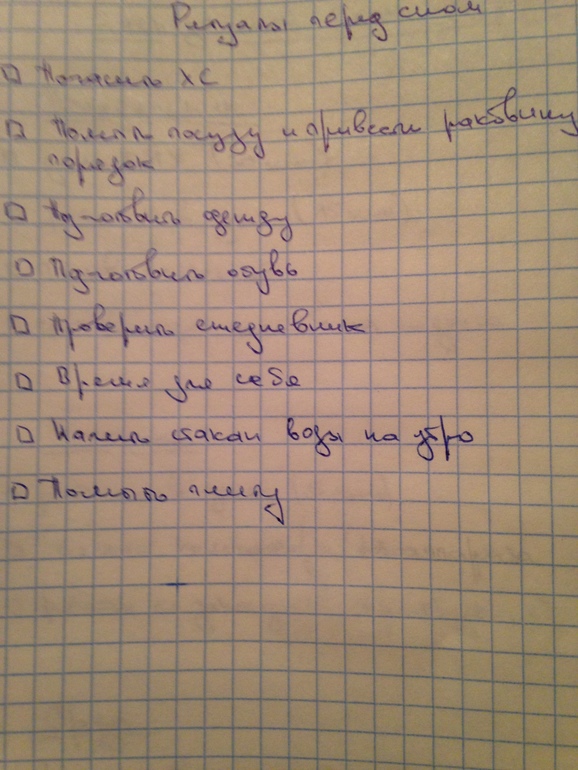 Ритуалы перед сном
□ Погасить ХС
□ Помыть посуду и привести раковину
порядок
□ Подготовить одежду
□ Подготовить обувь
□ Проверить ежедневник
□ Время для себя
□ Налить стакан воды на утро
□ Помыть плиту